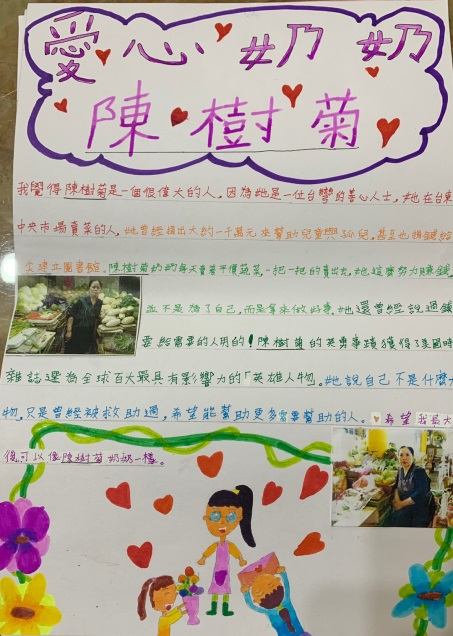 愛心奶奶
陳樹菊
我覺得陳樹菊是一個很偉大的人。因為她是一位台灣的善心人士,她在台東
中央市場賣菜的人,她曾經捐出大約一千萬元來幫助兒童與孤兒。甚至也捐錢給
去建立圖書館。陳樹菊奶奶每天賣著平價蔬菜,一把一把的賣出去,她這麼努力賺錢,
並不是為了自己,而是拿來做好事。她還曾經說過錢
要給需要的人用的!陳樹菊的英勇事蹟獲得了美國時
雜誌選為全球百大最具有影響力的「英雄人物。她說自己不是什麼
物,只是曾經被救助過,希望能幫助更多需要幫助的人。希望我長大
後可以像陳樹菊奶奶一樣。